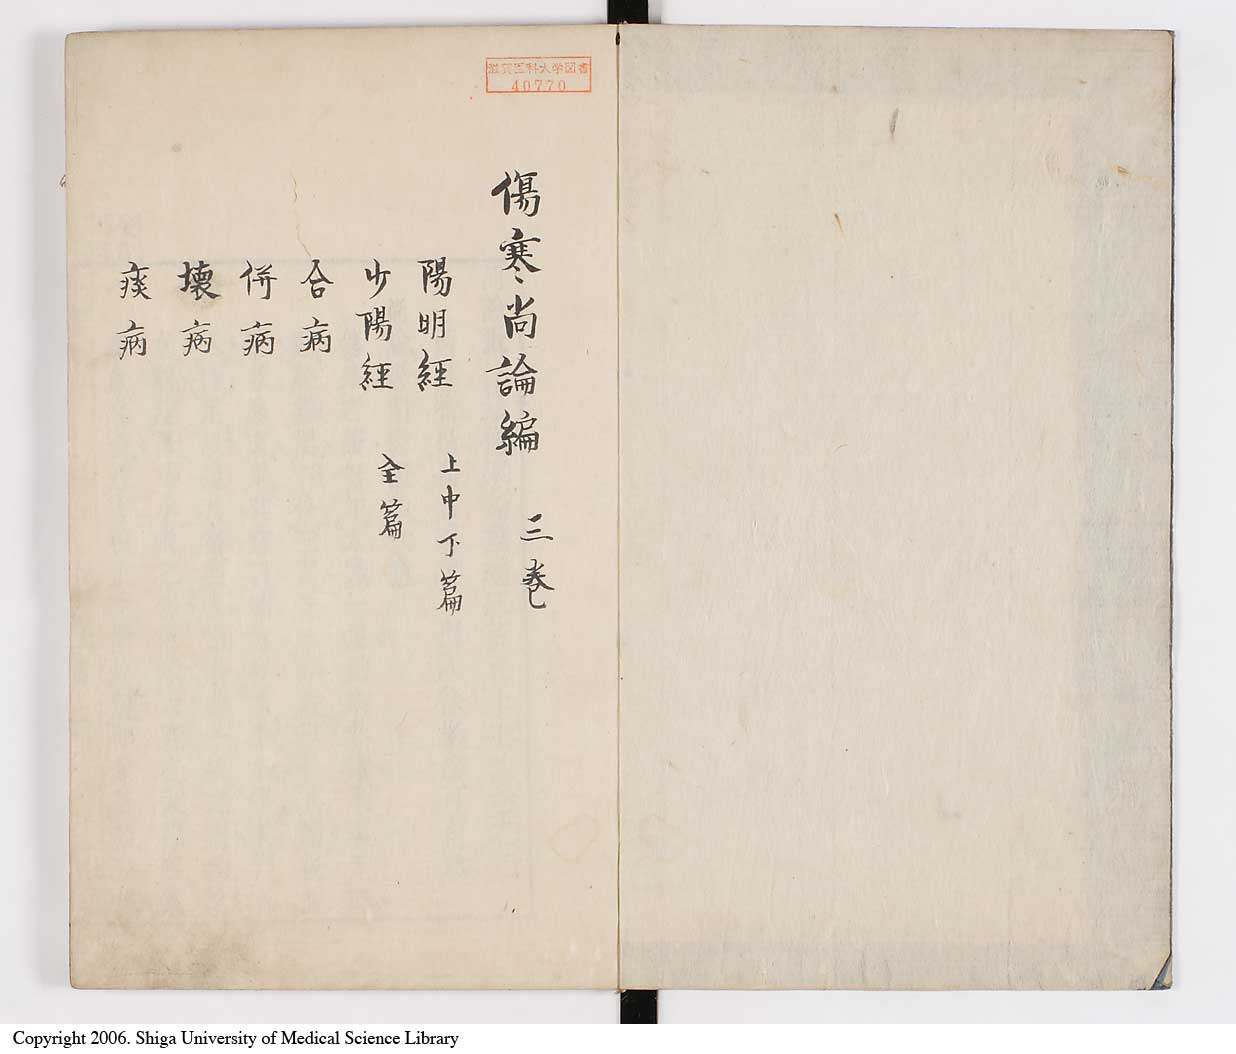 滋賀医科大学図書
40770
傷寒尚論編 三巻
陽明經 上中下篇
少陽經 全篇
合病
併病
壊病
痰病
Copyright 2006. Shiga University of Medical Science Library